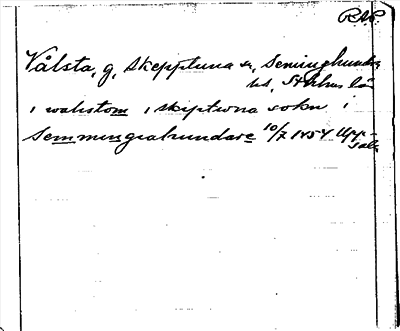 RAP.
Vålsta, g, Skepptuna sn, Seminghundra
hd, Sthlms län
i walistom i skiptwna sokn i
Semmingiahundare 10/7 1454 Upp-
sala